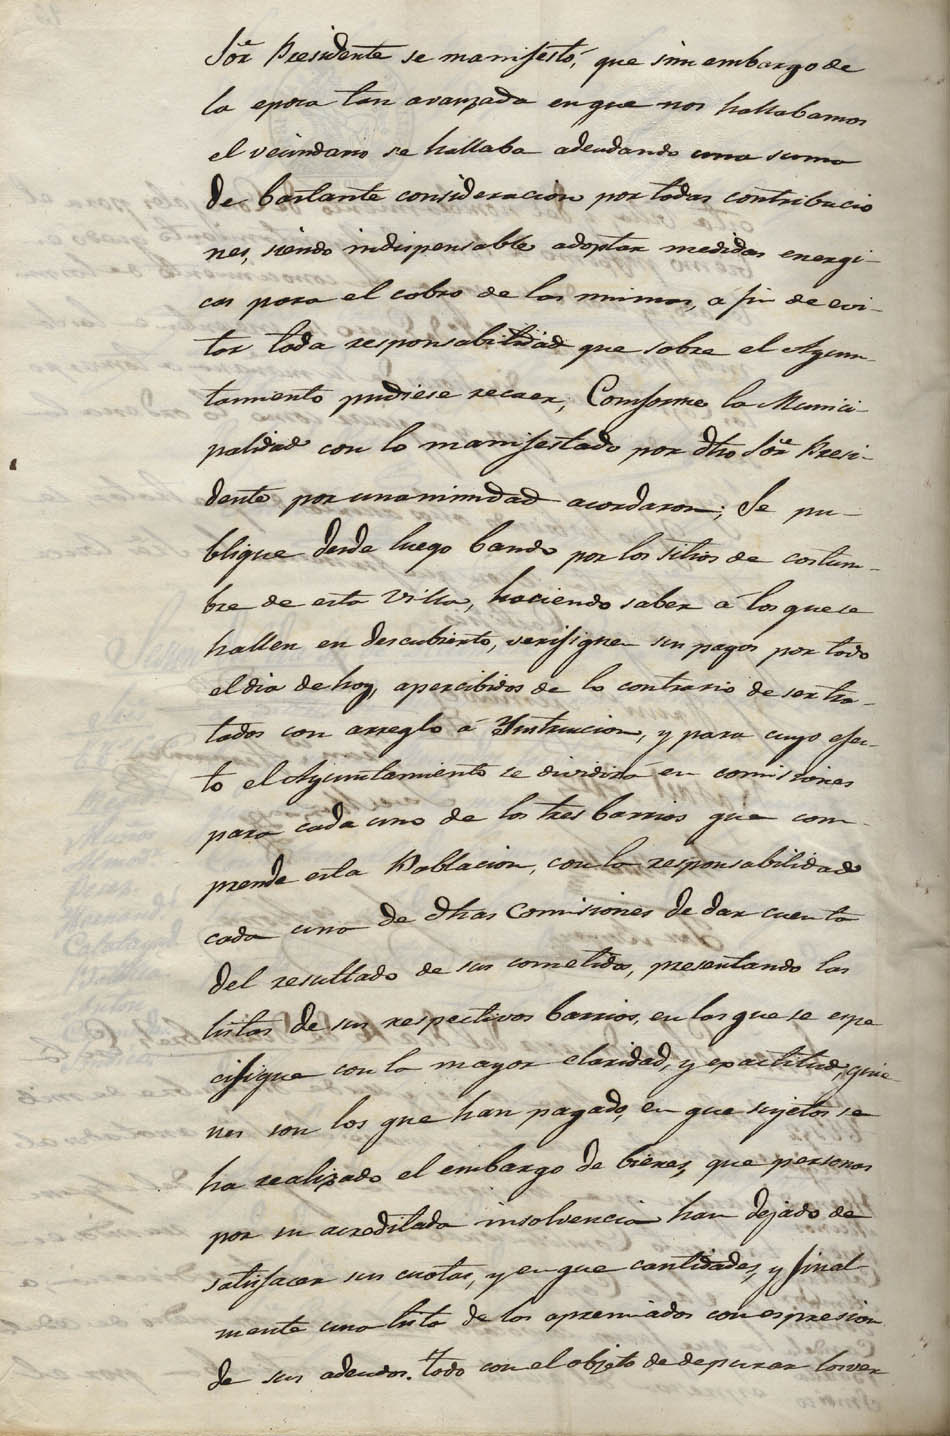 Sor. Presidente se manifestó, que sin embargo de
la epoca tan avanzada en que nos hallabamos
el vecindario se hallaba adeudando una suma
de bastante consideracion por todas contribucio
nes, siendo indispensable adoptar medidas energi-
cas para el cobro de las mismas, a fin de evi-
tar toda responsabilidad que sobre el Ayun-
tamiento pudiese recaer, Conforme la Munici-
palidad con lo manifestado por dho Sor. Presi-
dente por unanimidad acordaron; Se pu-
blique desde luego bando por los sitios de costum-
bre de esta Villa, haciendo saber á los que se
hallen en descubierto, verifiquen sus pagos por todo
el dia de hoy, apercibidos de lo contrario de ser tra-
tados con arreglo á Yntruccion, y para cuyo efec-
to el Ayuntamiento se dividirá en comisiones
para cada uno de los tres barrios que com-
prende esta Poblacion, con la responsabilidad
cada una de dhas Comisiones de dar cuenta
del resultado de sus cometidos, presentando las
listas de sus respectivos barrios, en las que se espe
cifique con la mayor claridad, y exactitud, quie
nes son los que han pagado, en que sujetos se
ha realizado el embargo de bienes, que personas
por su acreditada insolvencia han dejado de
satisfacer sus cuotas, y en que cantidades, y final
mente una lista de los apremiados con espresion
de sus adeudos. todo con el objeto de depurar los ver